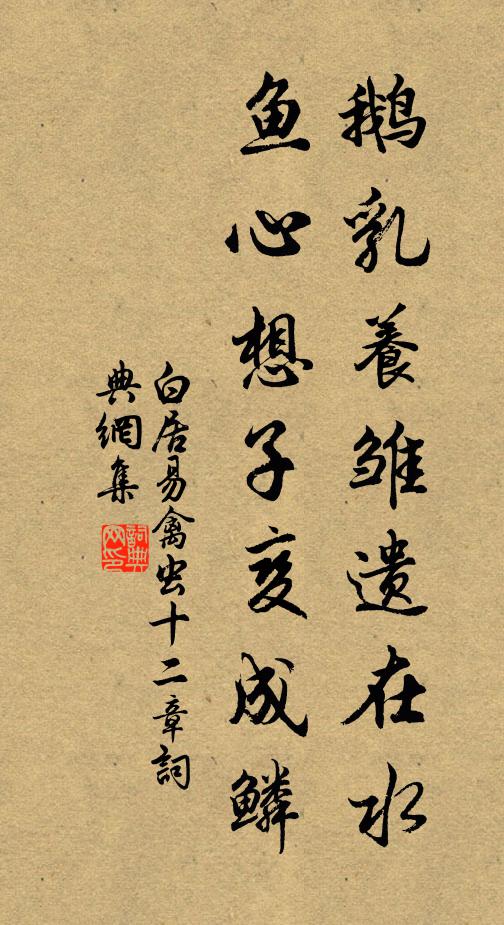 鹅乳養雏遗在水
鱼心想子变成鳞
白居易禽虫十二章詞
典網集
詞典網印